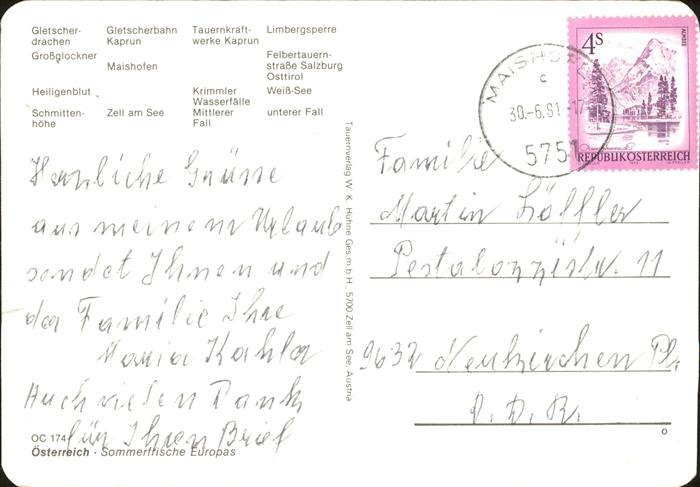 Gletscher-
drachen
Gletscherbahn
Kaprun
Tauernkraft-
werke Kaprun
Limbergsperre
Großglockner
Maishofen
Felbertauern-
straße Salzburg
Osttirol
Heiligenblut
Krimmler
Wasserfälle
Weiß-See
Schmitten-
höhe
Zell am See
Mittlerer
Fall
unterer Fall
Herzliche Grüsse
aus meinem Urlaub
sendet Ihnen und
der Familie Ihre
Maria Kahler
Auch vielen Dank
für Ihren Brief
OC 174
Österreich - Sommerfrische Europas
Tauernverlag W. K. Huhne Ges.m.b.H., 5700 Zell am See, Austria
MAISHOFEN
c
30.-6.81-17
5751
4S
ALMSEE
REPUBLIK ÖSTERREICH
Familie
Martin Löffler
Pestalozzistr. 11
9632 Neukirchen Pl.
D. D. R.